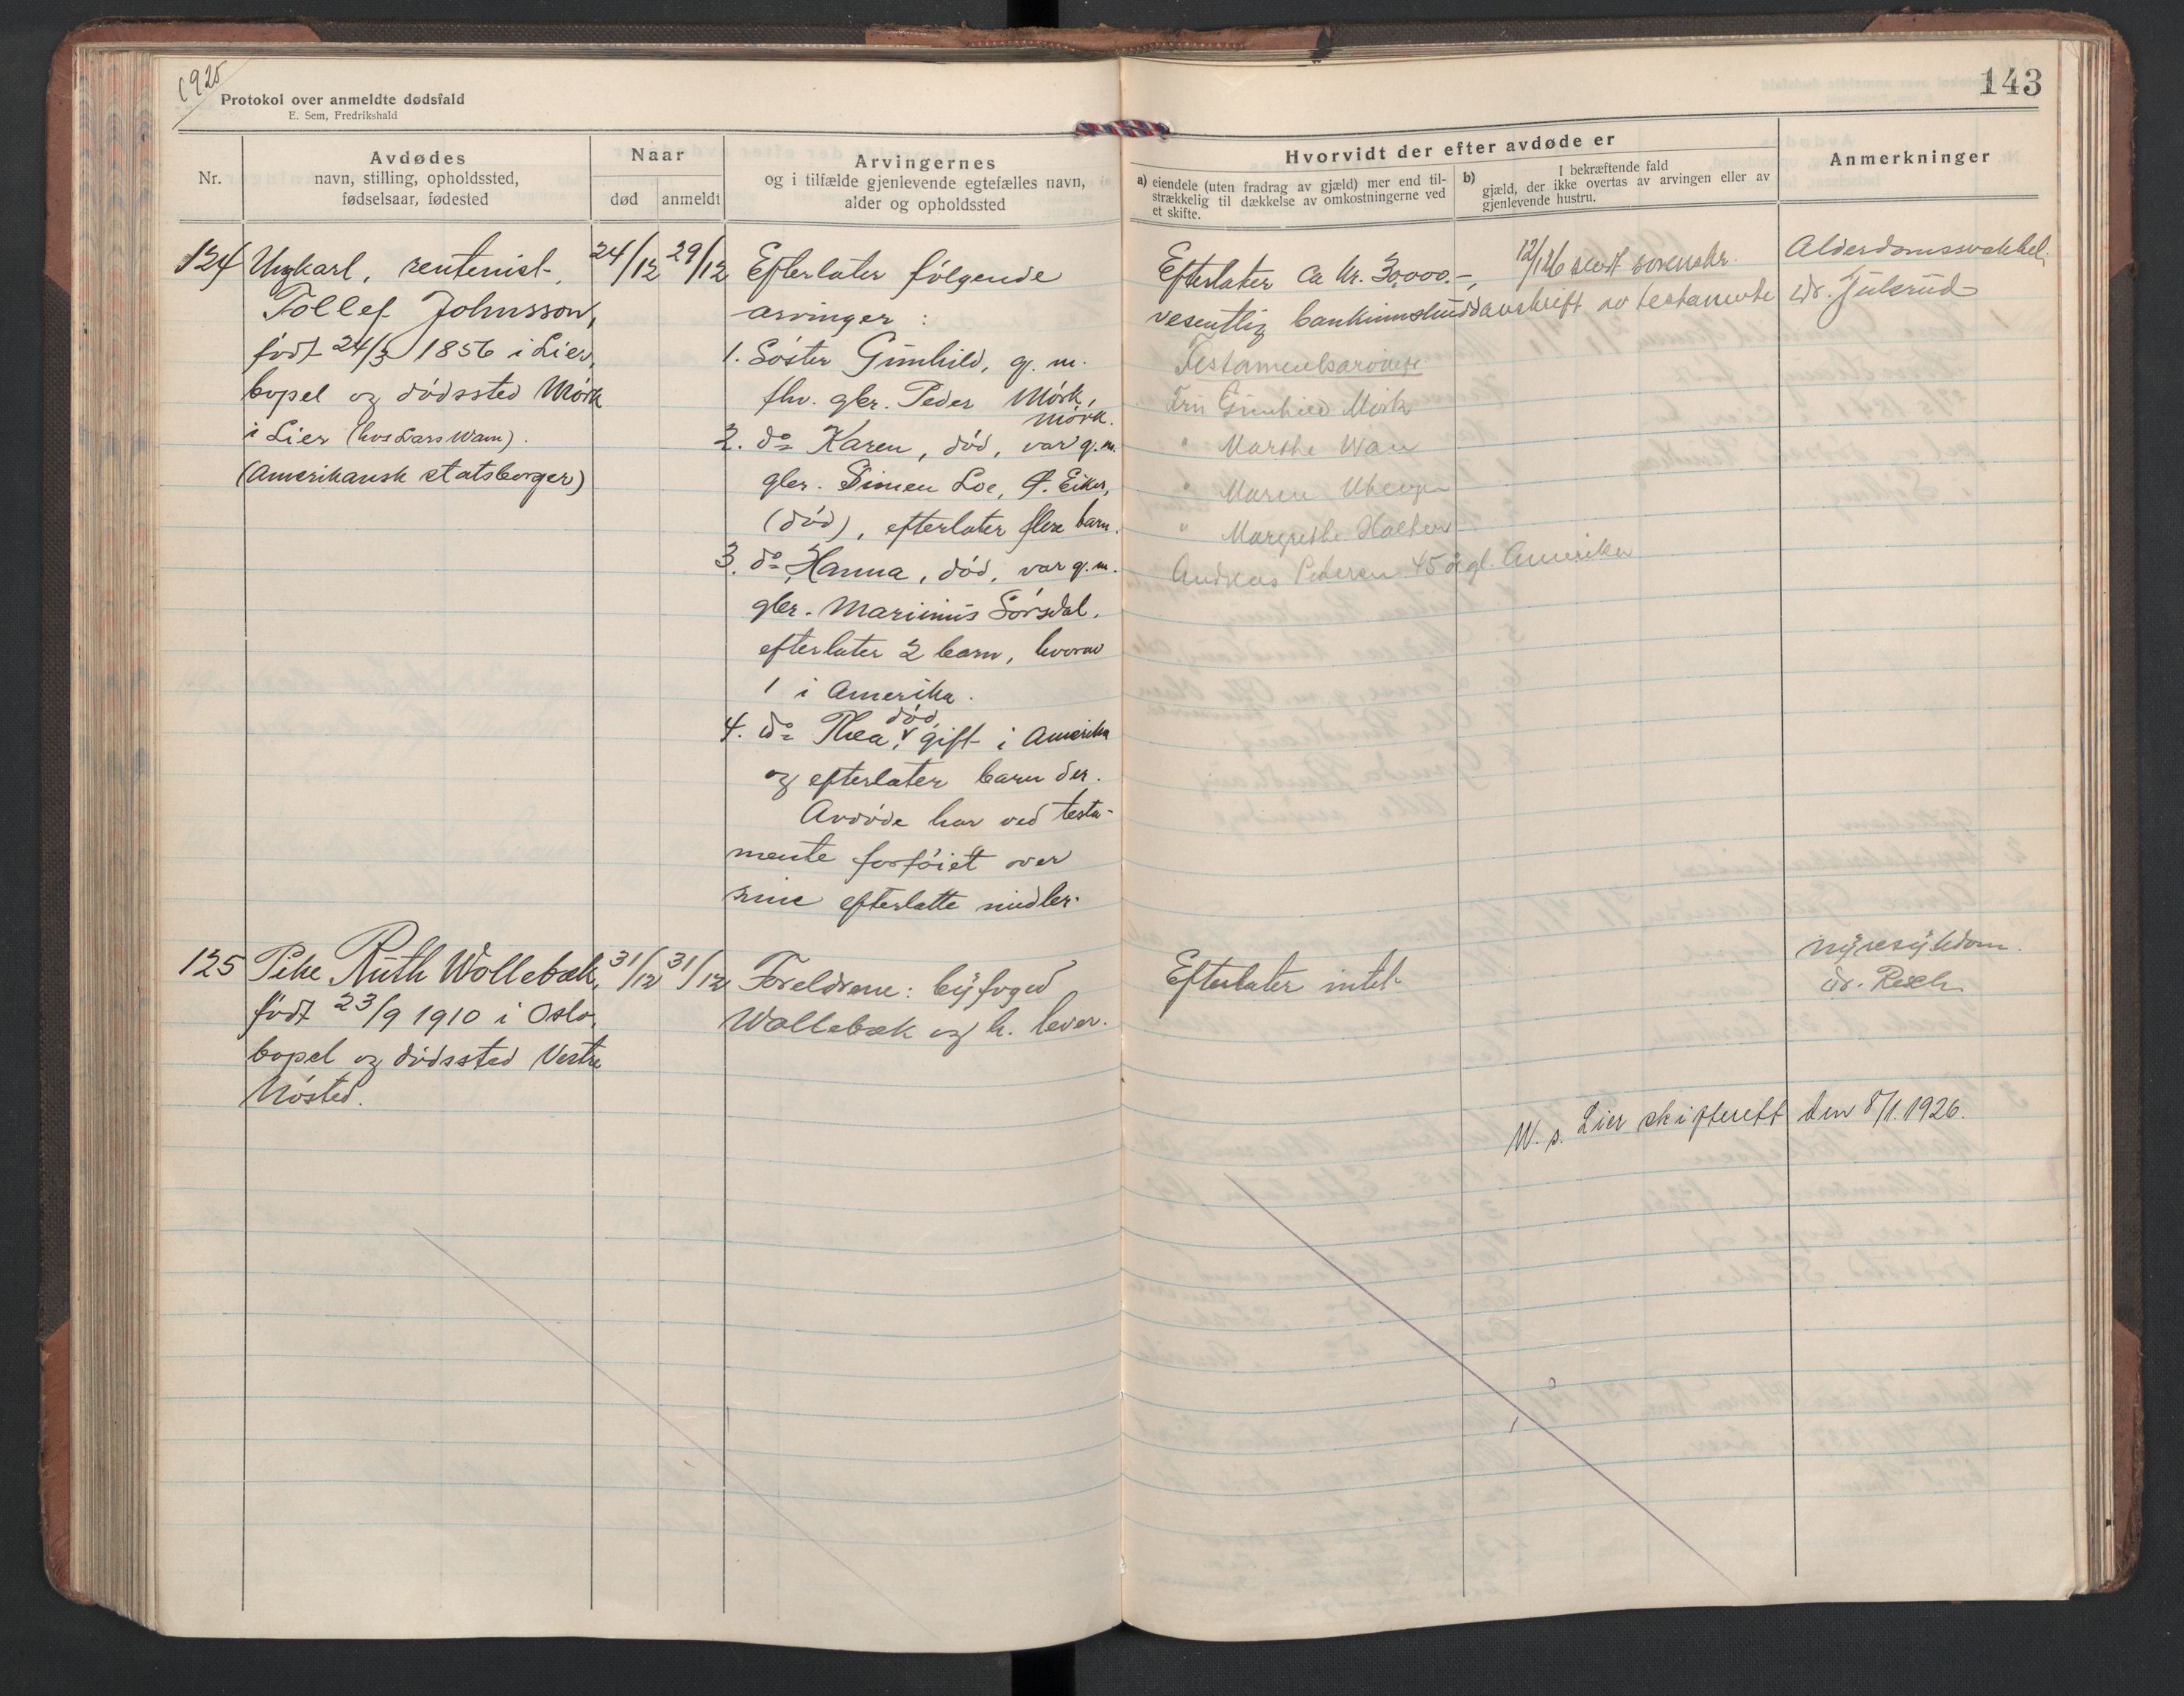 1925
Protokol over anmeldte dødsfald
E. Sem, Fredrikshald
143
Nr.
Avdødes
navn, stilling, opholdssted,
fødselsaar, fødested
Naar
død
anmeldt
Arvingernes
og i tilfælde gjenlevende egtefælles navn,
alder og opholdssted
Hvorvidt der efter avdøde er
a) eiendele (uten fradrag av gjæld) mer end til-
strækkelig til dækkelse av omkostningerne ved
et skifte.
b) I bekræftende fald
gjæld, der ikke overtas av arvingen eller av
gjenlevende hustru.
Anmerkninger
124
Ungkarl, rentenist
Tollef Johnsson,
født 24/3 1856 i Lier,
bopel og dødssted Mørk
i Lier (hos Lars Wam).
(Amerikansk statsborger)
24/12
29/12
Efterlater følgende
arvinger :
1. Søster Gunhild, g. m.
fhv. gbr. Peder Mørk,
Mørk.
2. do Karen, død, var g. m.
gbr. Simen Loe, Ø. Eiker,
(død), efterlater flere barn.
3. do Hanna, død, var g. m.
gbr. Marinius Sørsdal,
efterlater 2 barn, hvorav
1 i Amerika.
4. do Thea, død, gift i Amerika
og efterlater barn der.
Avdøde har ved testa-
mente forføiet over
sine efterlatte midler.
Efterlater ca kr. 30,000.-,
vesentlig bankinnskudd
12/1 26 sendt sorenskr.
avskrift av testamente
Testamentsarvinger
Fru Gunhild Mørk
" Marthe Wam
" Maren
" Margrethe Haltern
Andreas Pedersen 45 år gl. Amerika
Alderdomssvakhet.
dr. Julsrud
125
Pike Ruth Wollebæk,
født 23/9 1910 i Oslo,
bopel og dødssted Vestre
Nøsted.
31/12
31/12
Foreldrene: byfoged
Wollebæk og h. lever.
Efterlater intet
Nyresykdom.
dr. Resch
W. s. Lier skifterett den 8/1. 1926.